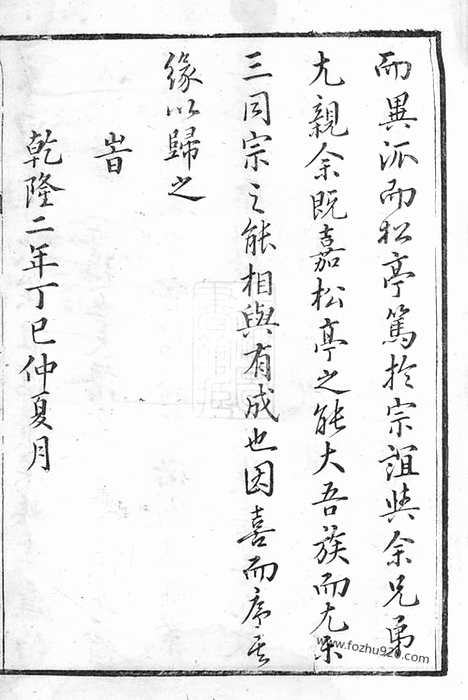 而異派而松亭篤於宗誼與余兄弟
尤親余既嘉松亭之能大吾族而尤樂
三同宗之能相與有成也因喜而序其
緣以歸之
旹
乾隆二年丁巳仲夏月
www.fozhu920.com